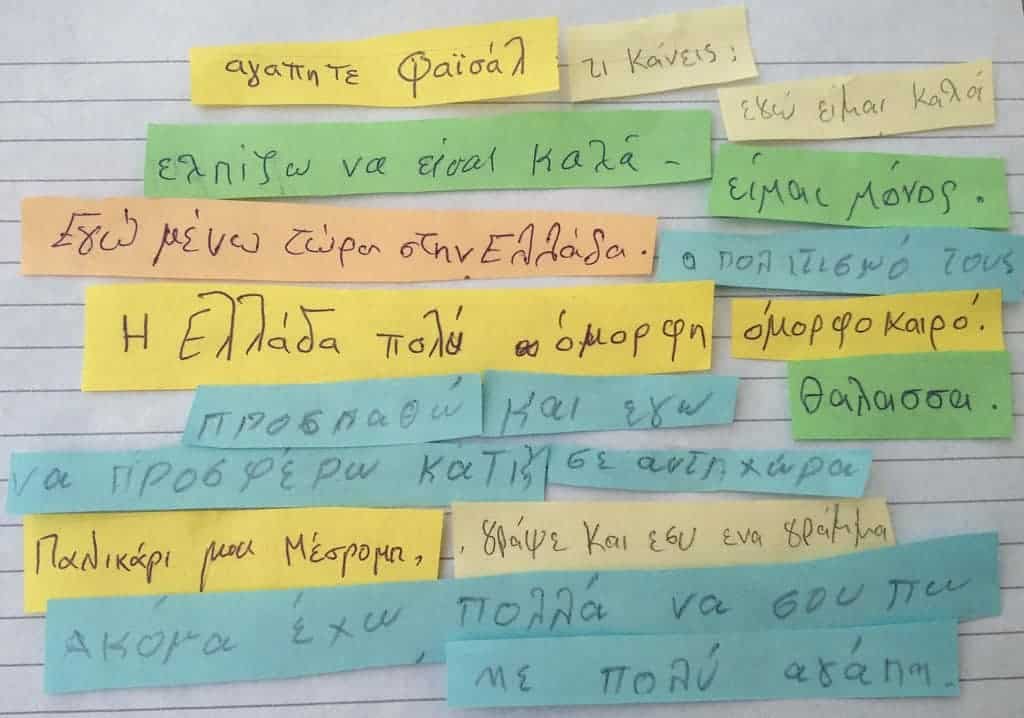 αγαπητε Φαϊσάλ τι κάνεις;
εγώ είμαι καλά
ελπίζω να είσαι καλά -
είμαι μόνος.
Εγώ μένω τώρα στην Ελλάδα.
ο πολιτισμό τους
Η Ελλάδα πολύ όμορφη όμορφο καιρό.
θάλασσα.
προσπαθώ και εγω
να προσφέρω κατι σε αυτη χώρα
Παλικάρι μου , γράψε και εσυ ενα γράμμα
Ακόμα έχω πολλά να σου πω
με πολύ αγάπη.